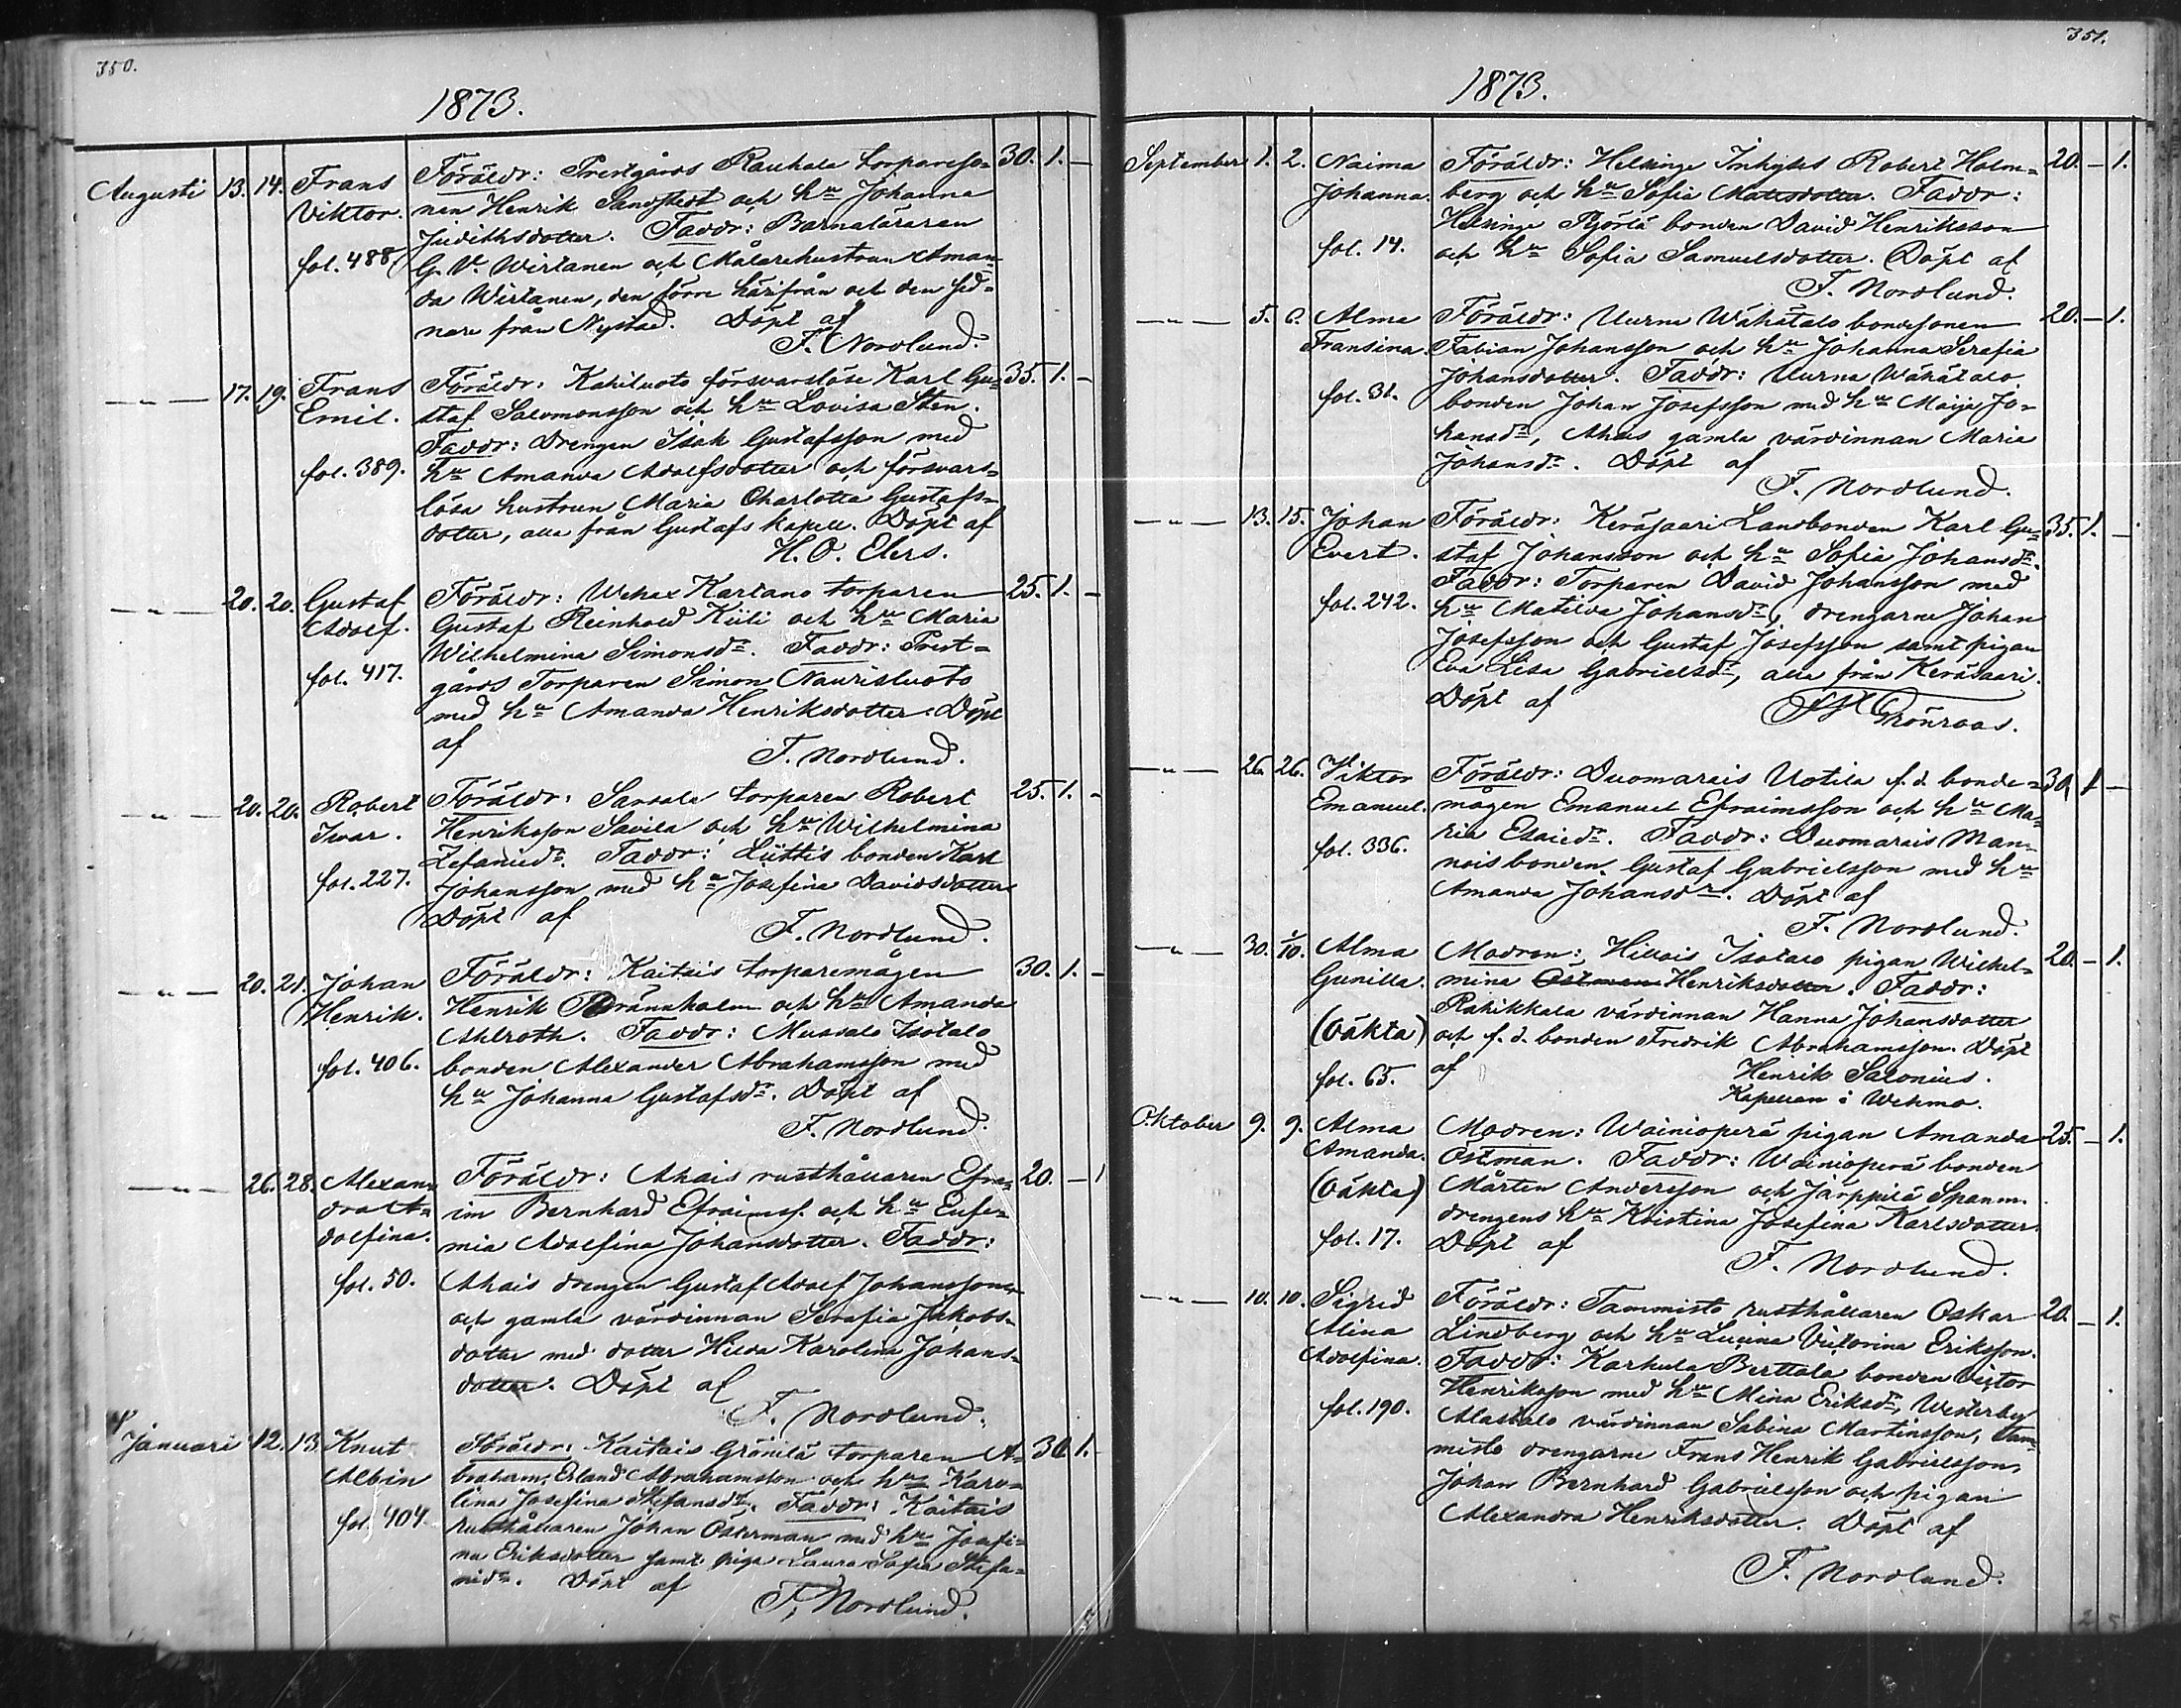 350.
1873.
Augusti 13. 14. Frans Föräldr: Prestgårds Raukala torpareso- 30. 1. —
Viktor. nen Henrik Sandstedt och hu Johanna
Judithsdotter. Faddr: Barnaläraren
fol. 488. G. V. Wirtanen och Målarehustrun Aman-
da Wirtanen, den förre härifrån och den sed-
nare från Nystad. Döpt af
F. Nordlund.
—„— 17. 19. Frans Föräldr: Kahiluoto försvarslöse Karl Gu- 35. 1. —
Emil. staf Salomonsson och hu Lovisa Sten.
Faddr: Drengen Isak Gustafsson med
fol. 389. hu Amanda Adolfsdotter och försvars-
lösa hustrun Maria Charlotta Gustafs-
dotter, alla från Gustafs kapell. Döpt af
H. O. Elers.
—„— 20. 20. Gustaf Föräldr: Wehax Kartano torparen 25. 1. —
Adolf. Gustaf Reinhold Kiili och hu Maria
Wilhelmina Simonsdr. Faddr: Prest-
fol. 417. gårds Torparen Simon Nauristuoto
med hu Amanda Henriksdotter. Döpt
af
F. Nordlund.
—„— 20. 20. Robert Föräldr: Sarsala torparen Robert 25. 1. —
Ivar. Henriksson Savila och hu Wilhelmina
Zefanied. Faddr: Liittis bonden Karl
fol. 227. Johansson med hu Josefina Davidsdotter
Döpt af
F. Nordlund.
—„— 20. 21. Johan Föräldr: Kaitais torparemågen 30. 1. —
Henrik. Henrik Brännholm och hu Amanda
Ahlroth. Faddr: Mussalo Isotalo
fol. 406. bonden Alexander Abrahamsson med
hu Johanna Gustafsdr. Döpt af
F. Nordlund.
—„— 26. 28. Alexan- Föräldr: Ahais rusthållaren Efra- 20. — 1
dra A- im Bernhard Efraimss. och hu Eufe-
dolfina. mia Adolfina Johansdotter. Faddr:
fol. 50. Ahais drengen Gustaf Adolf Johansson
och gamla värdinnan Serafia Jakobs-
dotter med dotter Hilda Karolina Johans-
dotter. Döpt af
F. Nordlund.
Januari 12. 13. Knut Föräldr: Kaitais Gränilä torparen A- 30. 1. —
Albin braham Erland Abrahamsson och hu Karo-
lina Josefina Stefansdr. Faddr: Kaitais
fol. 404 rusthållaren Johan Österman med hu Josefi-
na Eriksdotter samt piga Laura Sofia Stefa-
nidr. Döpt af
F. Nordlund.
351.
1873.
September 1. 2. Naima Föräldr: Helsinge Inhyses Robert Holm- 20. — 1.
Johanna. berg och hu Sofia Mattsdotter. Faddr:
Helsinge Pjörlä bonden David Henriksson
fol. 14. och hu Sofia Samuelsdotter. Döpt af
F. Nordlund.
—„— 5. 6. Alma Föräldr: Uurna Wähätalo bondesonen 20. — 1.
Fransina. Fabian Johansson och hu Johanna Serafia
Johansdotter. Faddr: Uurna Wähätalo
fol. 31. bonden Johan Josefsson med hu Maija Jo-
hansdr, Ahais gamla värdinnan Maria
Johansdr. Döpt af
F. Nordlund.
—„— 13. 15. Johan Föräldr: Keräsaari Landbonden Karl Gu- 35. 1. —
Evert. staf Johansson och hu Sofia Johansdr.
Faddr: Torparen David Johansson med
fol. 242. hu Matilda Johansdr, drengarne Johan
Josefsson och Gustaf Josefsson samt pigan
Eva Lisa Gabrielsdr, alla från Keräsaari.
Döpt af
Grönroos.
—„— 26. 26. Viktor Föräldr: Duomarais Uotila f.d. bonde- 30. 1 —
Emanuel. mågen Emanuel Efraimsson och hu Ma-
ria Esaiedr. Faddr: Duomarais Man-
fol. 336. nois bonden Gustaf Gabrielsson med hu
Amanda Johansdr. Döpt af
F. Nordlund.
—„— 30. 1/10. Alma Modren: Hillois Isotalo pigan Wilhel- 20. — 1.
Gunilla. mina Östman Henriksdotter. Faddr:
Rahikkala värdinnan Hanna Johansdotter
(Oäkta) och f.d. bonden Fredrik Abrahamsson. Döpt
fol. 65. af
Henrik Salonius.
Kapellan i Wehmo.
Oktober 9. 9. Alma Modren: Wainioperä pigan Amanda 25. — 1.
Amanda. Östman. Faddr: Wainioperä bonden
(Oäkta) Mårten Andersson och Järppilä Spanm.
drengens hu Kristina Josefina Karlsdotter.
fol. 17. Döpt af
F. Nordlund.
—„— 10. 10. Sigrid Föräldr: Tammisto rusthållaren Oskar 20. — 1.
Alina Lindberg och hu Lucina Victorina Eriksson.
Adolfina. Faddr: Karhula Berttala bonden Victor
Henriksson med hu Mina Eriksdr, Westerby
fol. 190. Alastalo värdinnan Sabina Martinsson, Tam-
misto drengarne Frans Henrik Gabrielsson,
Johan Bernhard Gabrielsson och pigan
Alexandra Henriksdotter. Döpt af
F. Nordlund.